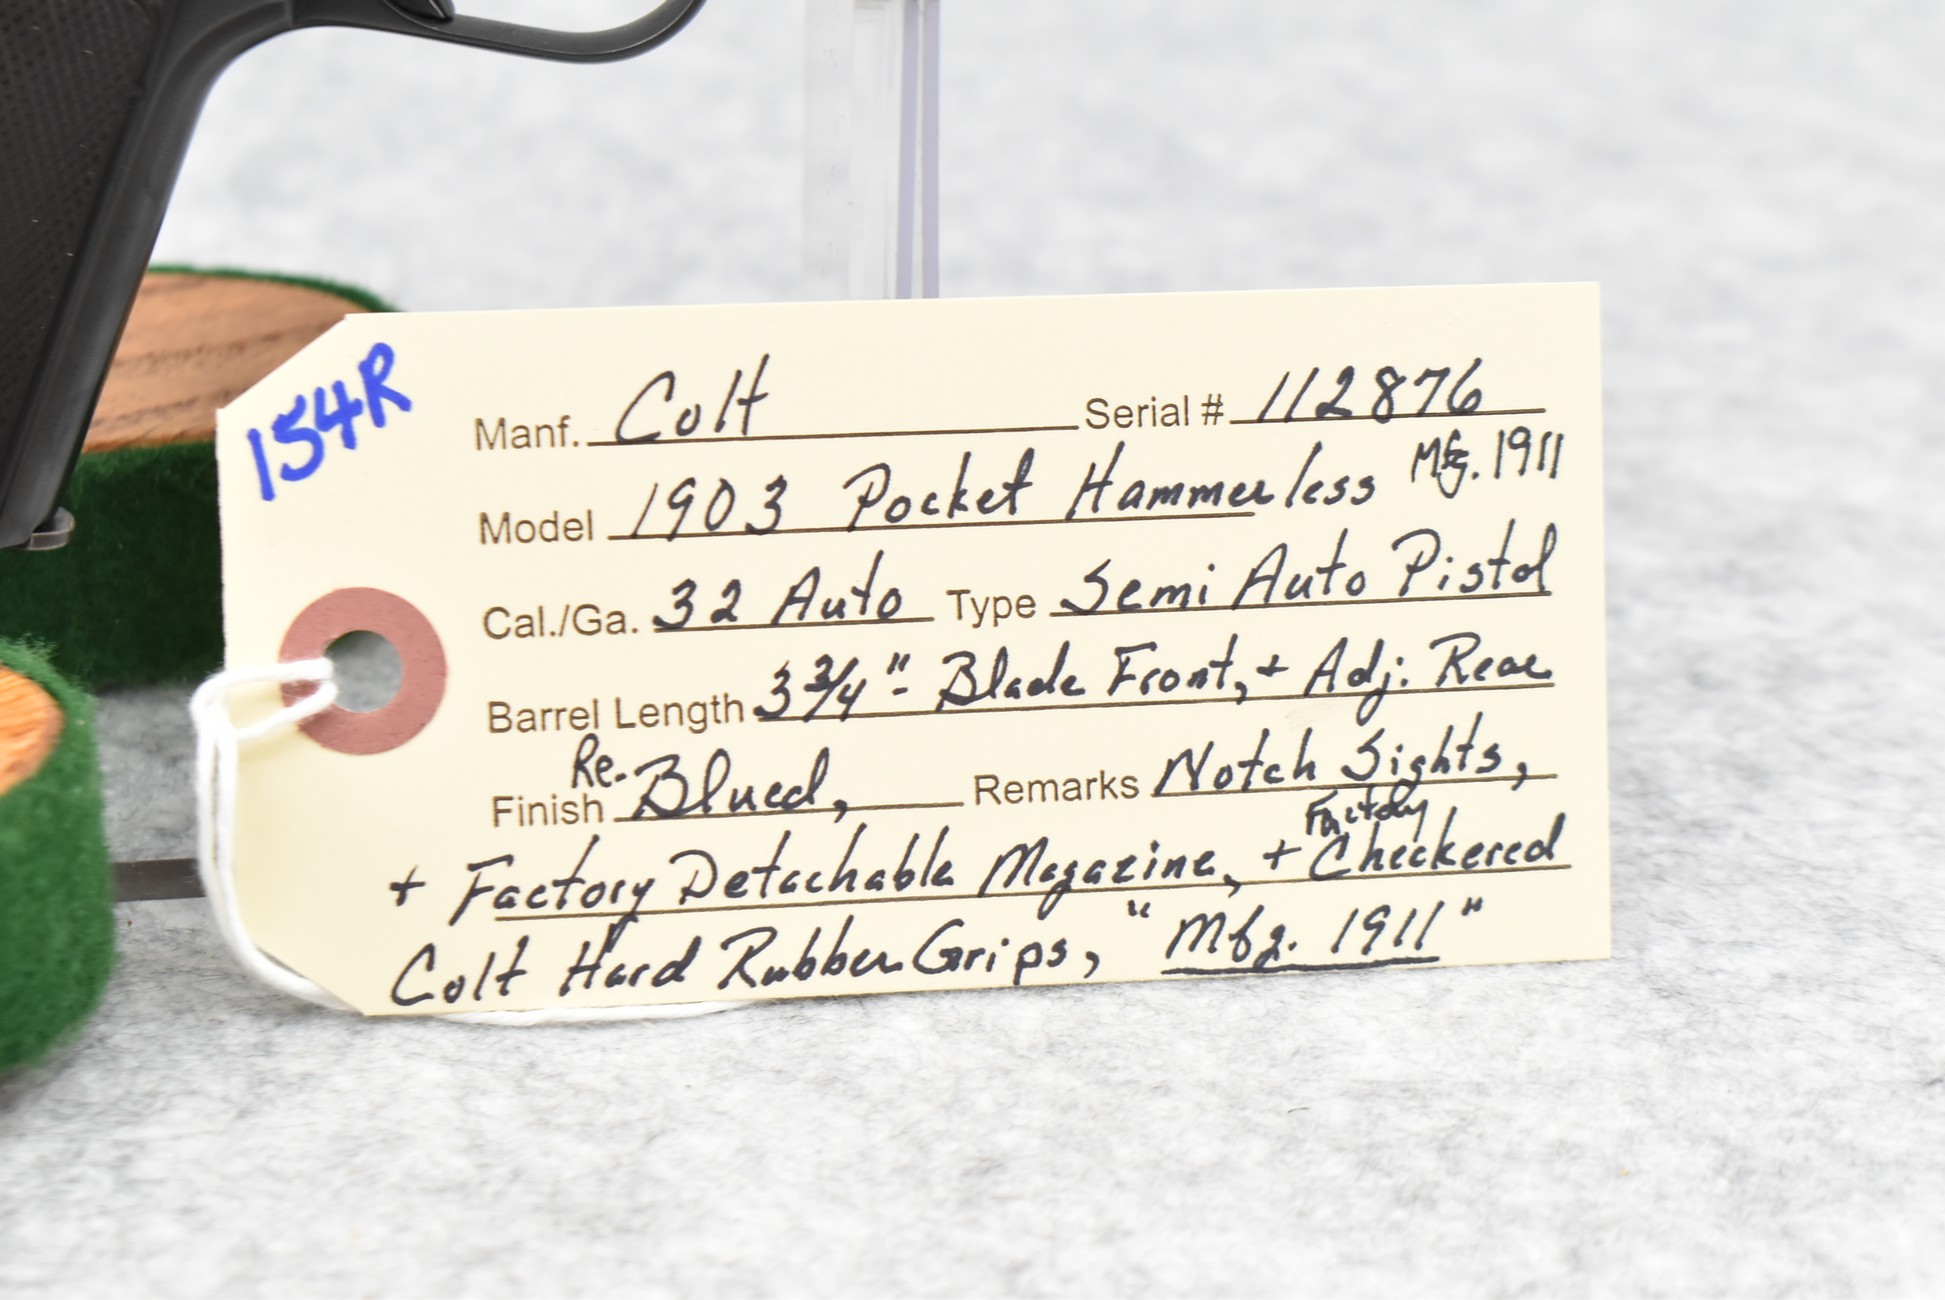 154R
Manf. Colt Serial # 112876
Model 1903 Pocket Hammerless Mfg. 1911
Cal./Ga. 32 Auto Type Semi Auto Pistol
Barrel Length 3 3/4" - Blade Front, + Adj. Rear
Finish Re-Blued, Remarks Notch Sights,
+ Factory Detachable Magazine, + Factory Checkered
Colt Hard Rubber Grips, "Mfg. 1911"